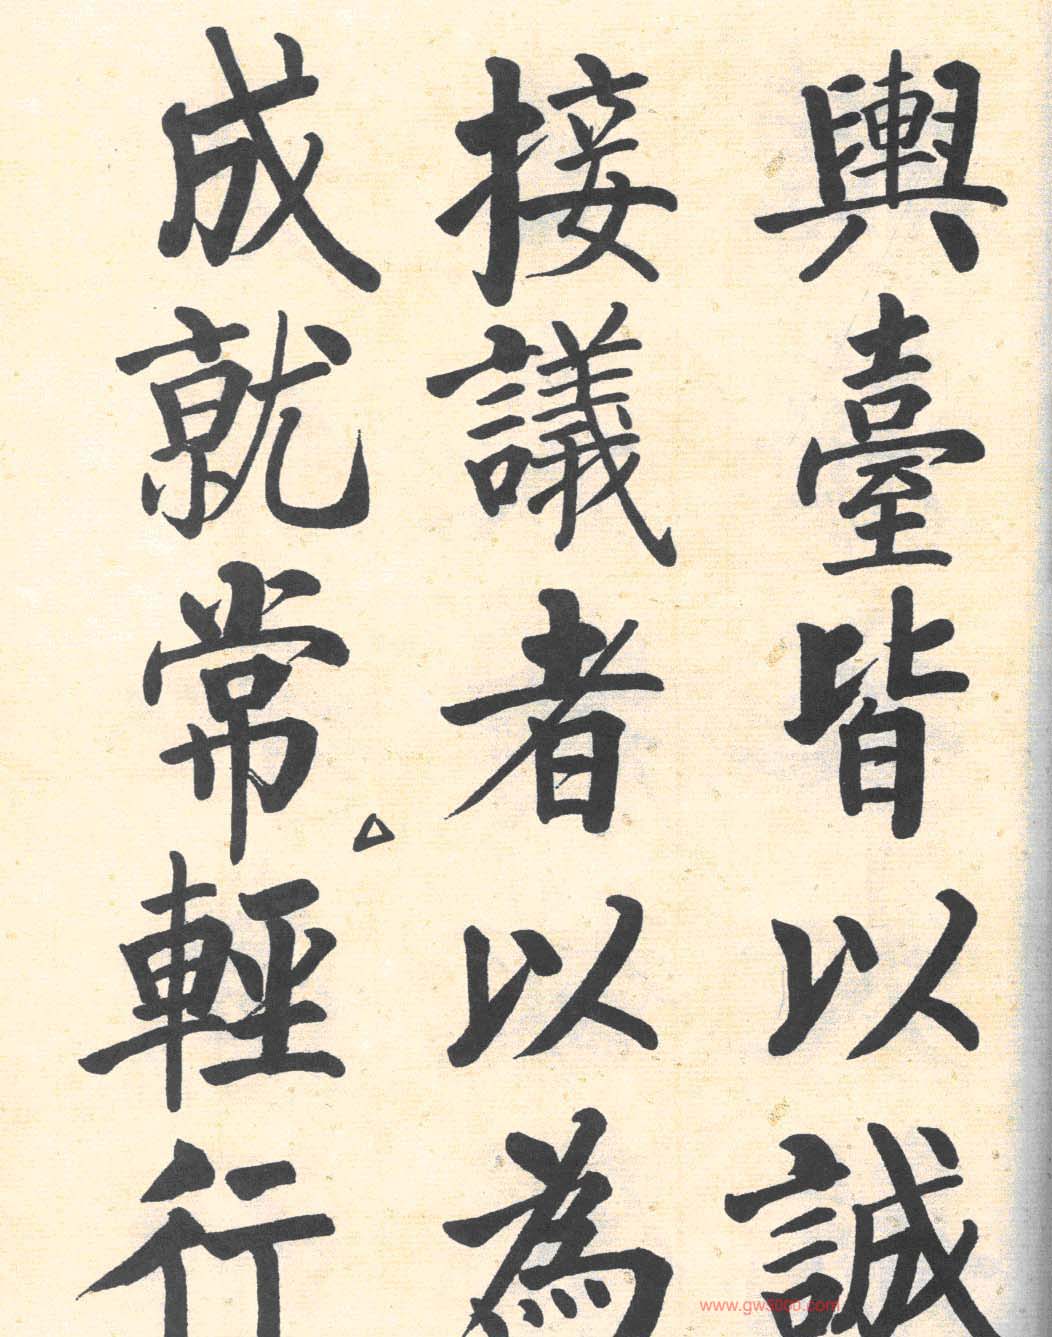 輿臺皆以誠
接議者以為
成就常輕行
www.gws000.com